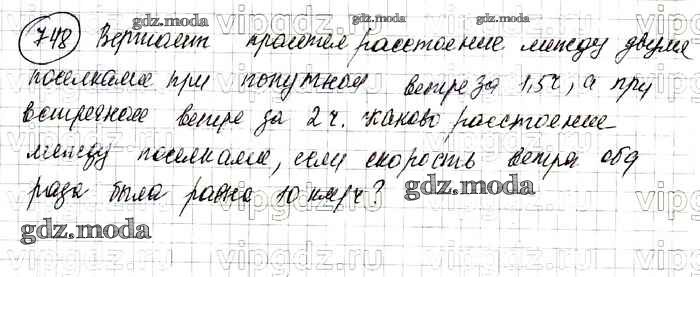 748 Вертолет пролетел расстояние между двумя
поселками при попутном ветре за 1,5 ч, а при
встречном ветре за 2 ч. Каково расстояние
между поселками, если скорость ветра оба
раза была равна 10 км/ч?
gdz.moda
gdz.moda
gdz.moda
gdz.moda
gdz.moda
vipgdz.ru